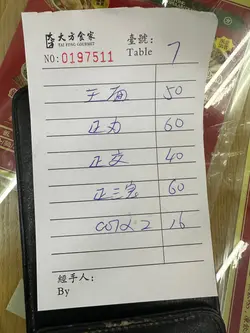 大方食家
TAI FONG GOURMET
臺號：
Table 7
NO: 0197511
干面 50
正力 60
正文 40
正三宝 60
cola 2 16
經手人：
By